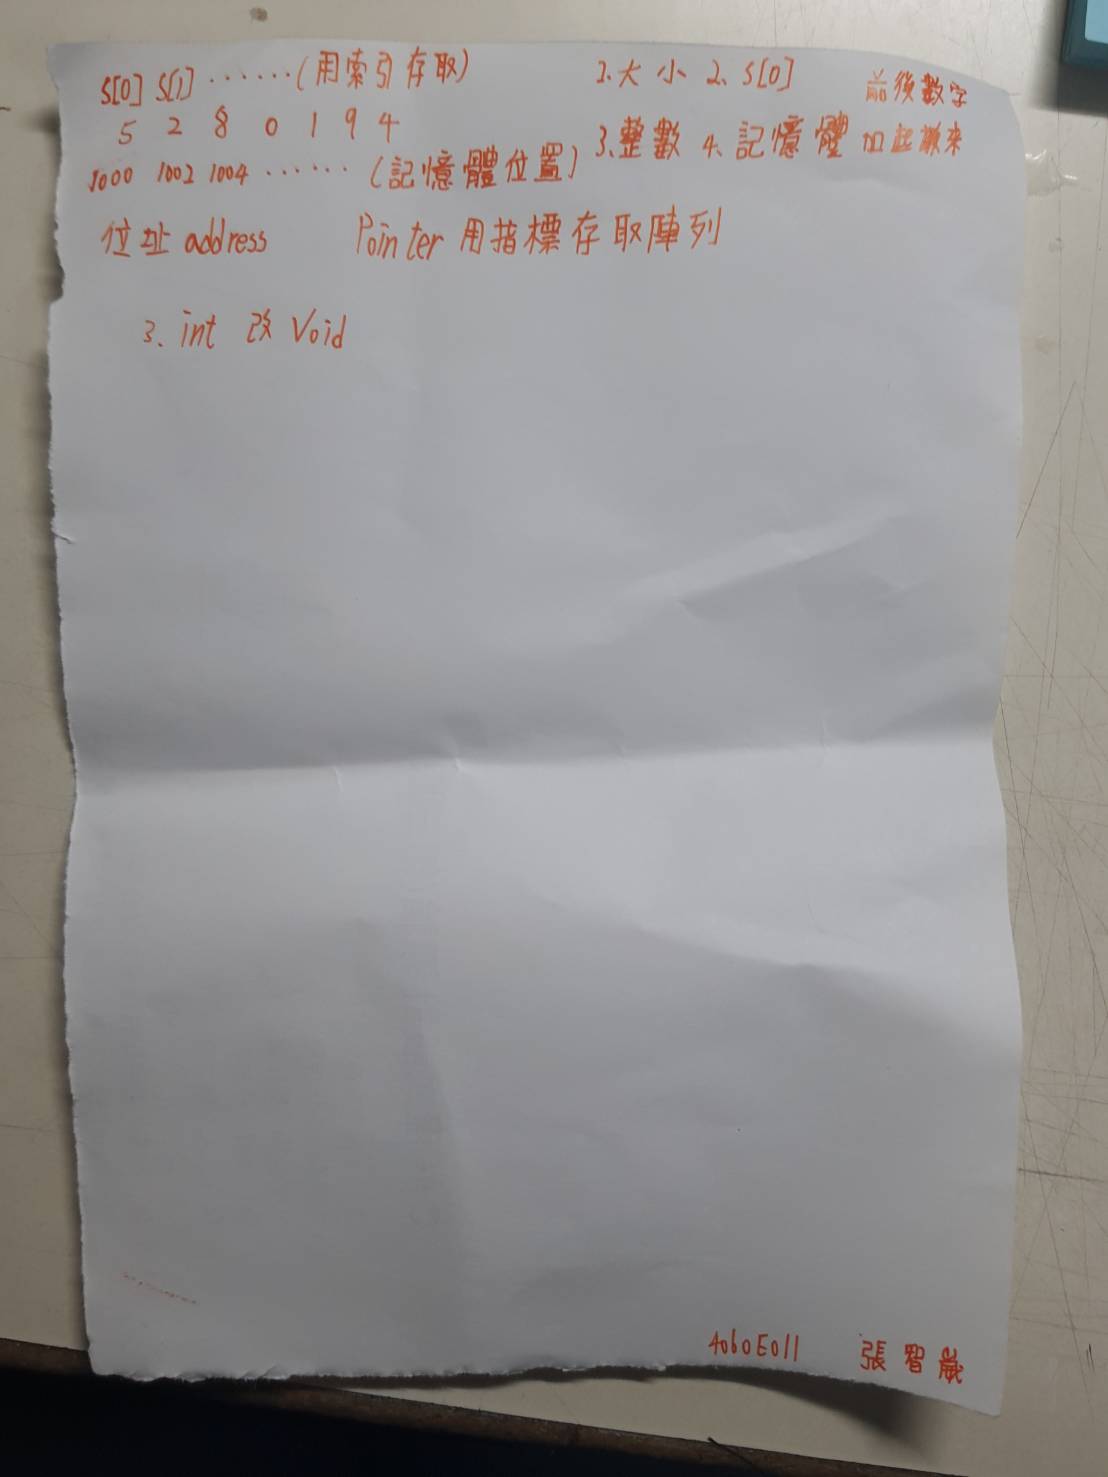 S[0] S[1] ......(用索引存取)
5 2 8 0 1 9 4
1000 1002 1004 ......(記憶體位置)
1.大小 2.S[0]
3.整數 4.記憶體
前後數字
加起來
位址 address Pointer 用指標存取陣列
3. int 改 Void
4060E011 張智